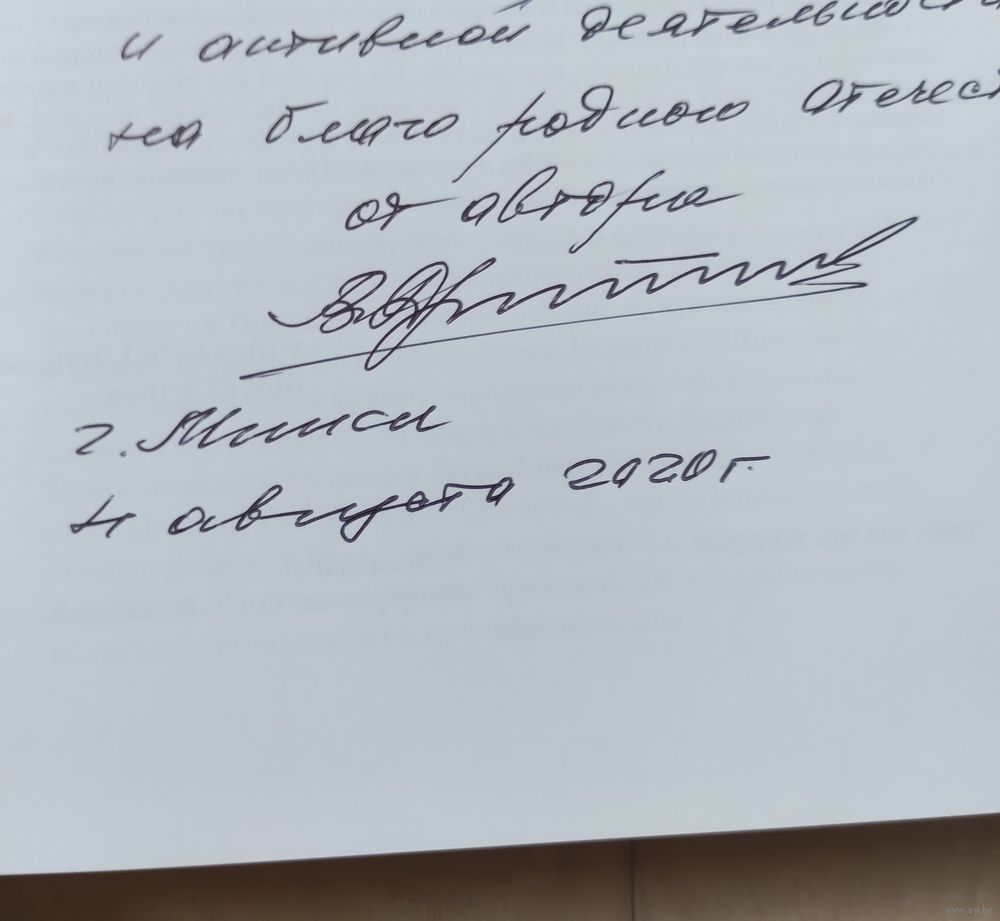 и активной деятельност
на благо родного Отечест
от автора
г. Минск
4 августа 2020 г.
www.ay.by